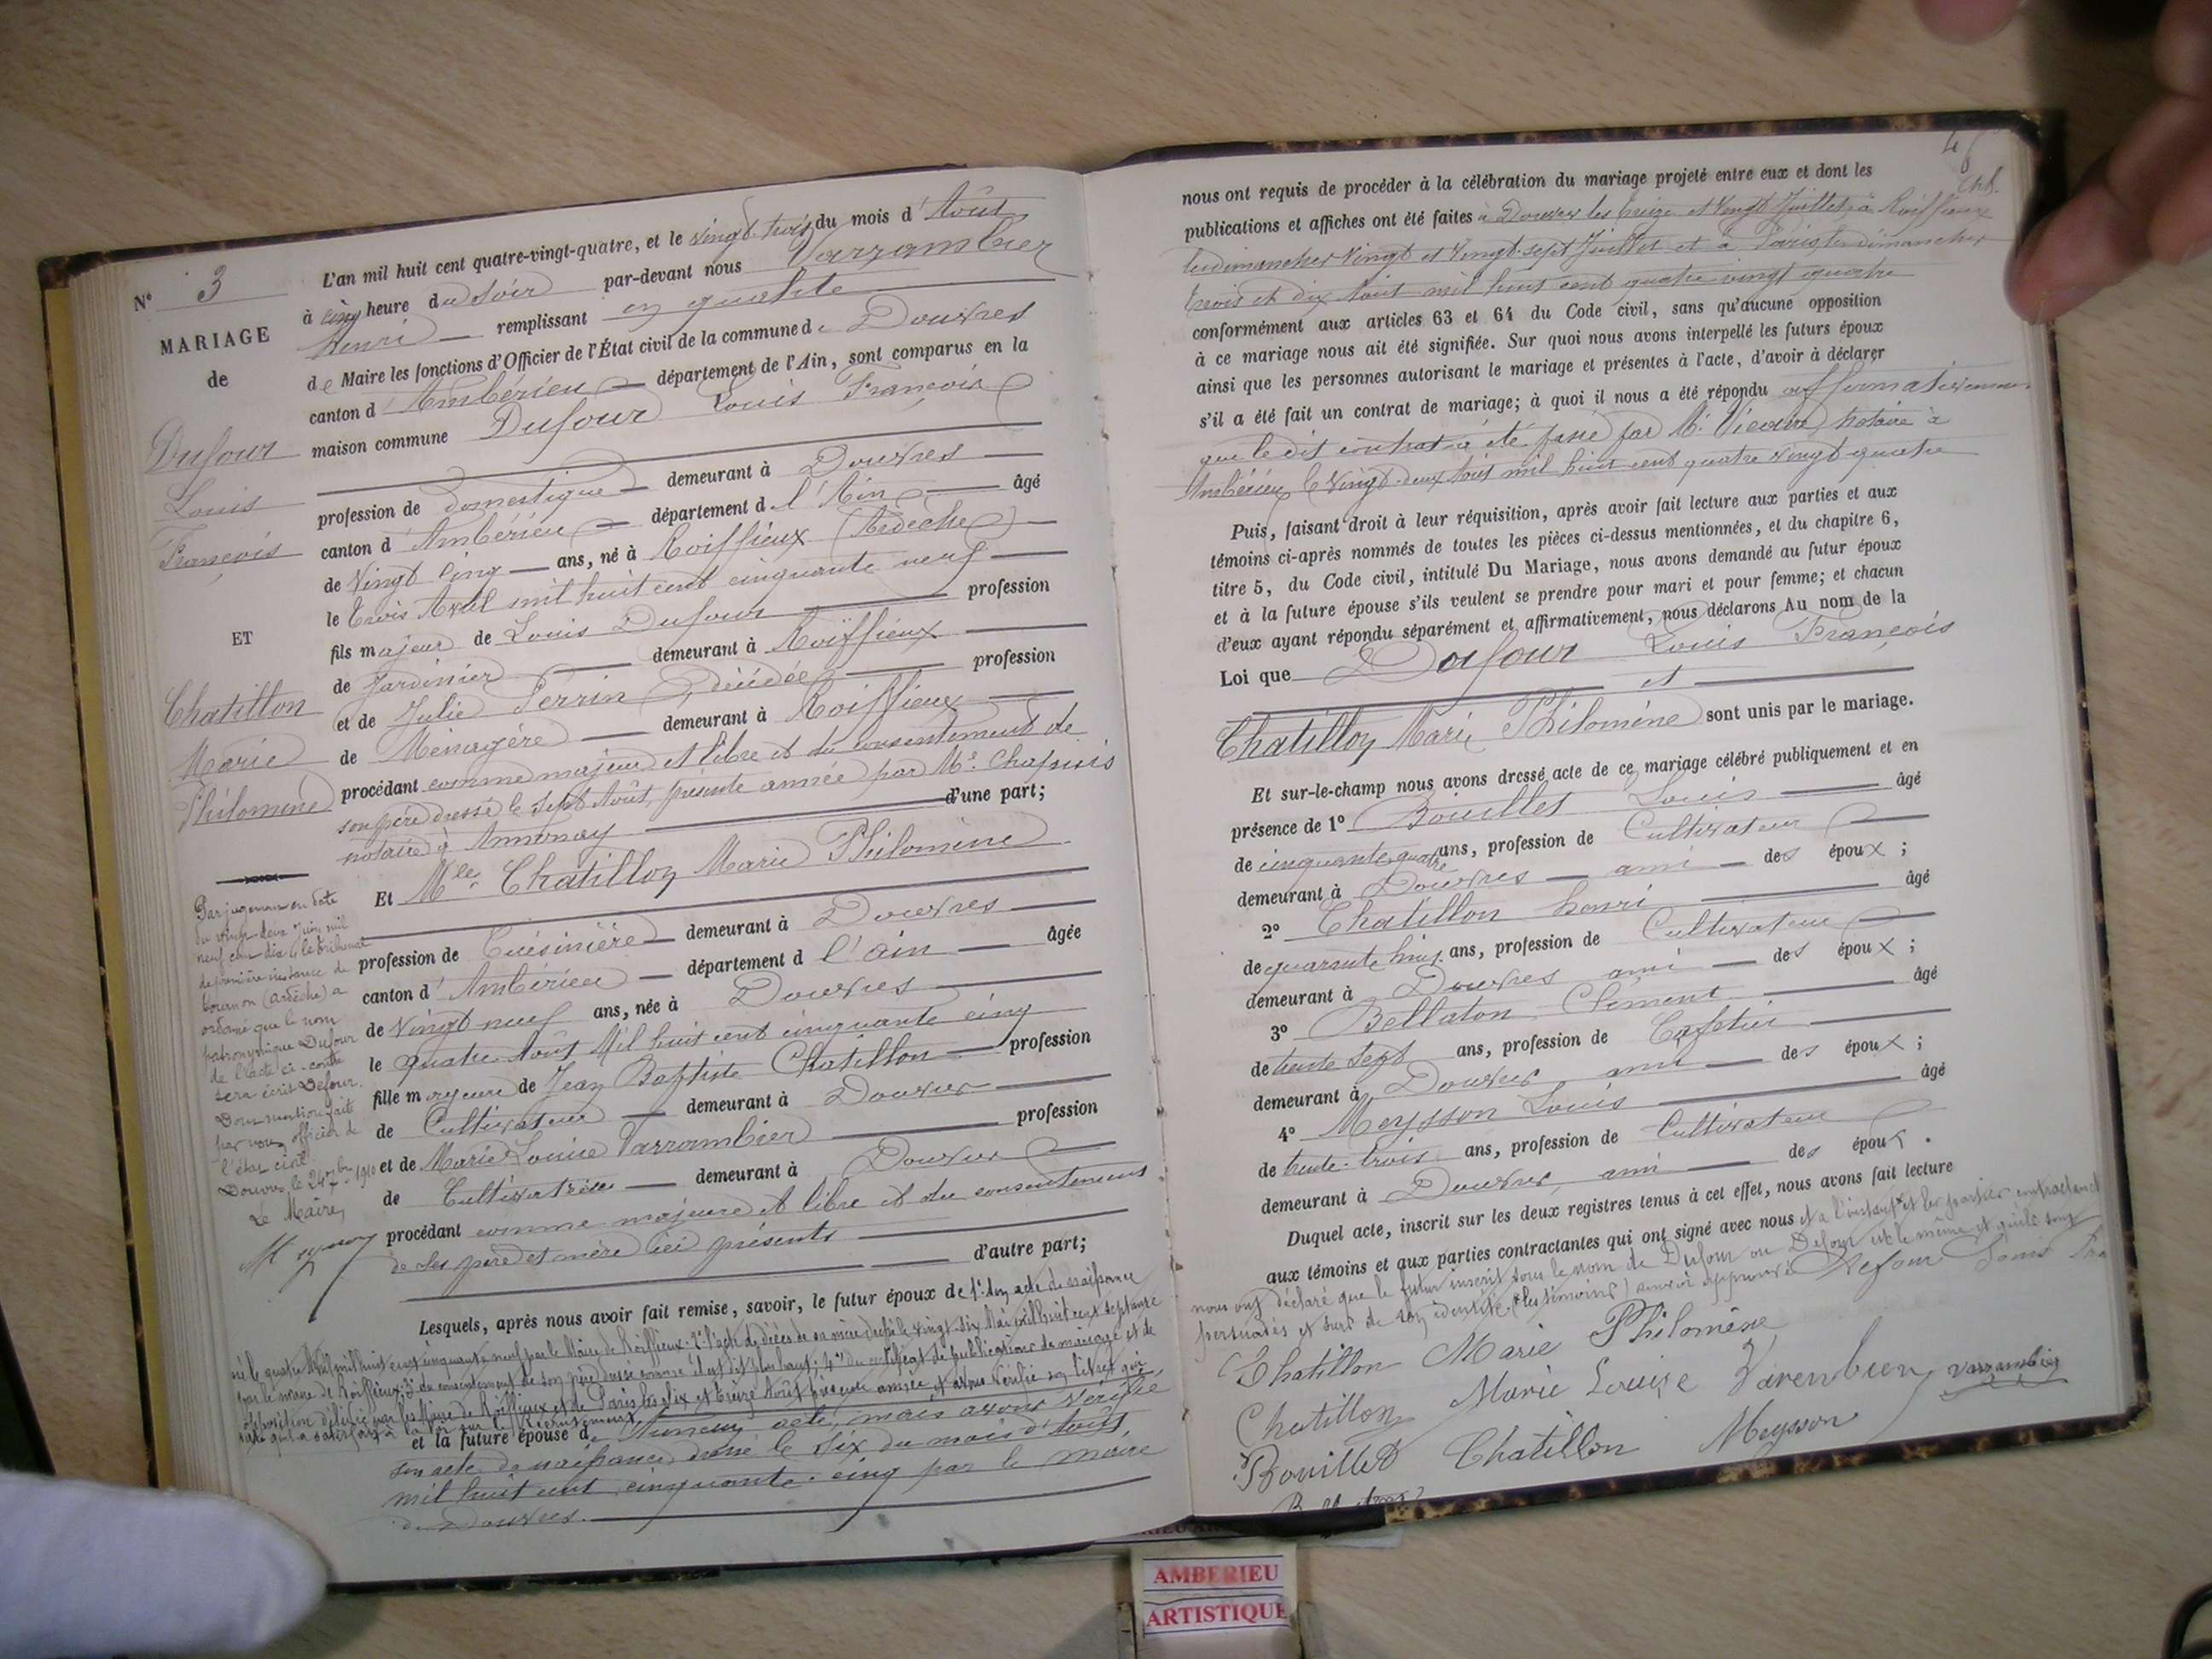 N° 3
MARIAGE
de
Dufour
Louis
François
ET
Chatillon
Marie
Philomène
Par jugement en date
du vingt deux Juin mil
neuf cent dix le tribunal
de première instance de
Tournon (Ardèche) a
ordonné que le nom
patronymique Dufour
de l'acte ci-contre
sera écrit Defour.
Dont mention faite
par nous officier de
l'état civil
Douvres le 24 7bre 1910
Le Maire,
L'an mil huit cent quatre-vingt-quatre, et le vingt-trois du mois d'Août
à cinq heure du soir par-devant nous Varrambier
henri remplissant en qualité
de Maire les fonctions d'Officier de l'État civil de la commune de Douvres
canton d'Ambérieu département de l'Ain, sont comparus en la
maison commune Dufour Louis François
profession de domestique demeurant à Douvres
canton d'Ambérieu département d l'Ain âgé
de Vingt Cinq ans, né à Roiffieux (Ardèche)
le trois Avril mil huit cent cinquante neuf
fils majeur de Louis Dufour profession
de Jardinier demeurant à Roiffieux
et de Julie Perrin, décédée profession
de Ménagère demeurant à Roiffieux
procédant comme majeur et libre et du consentement de
son père dressé le sept Août, présente année par Me. Chapuis
notaire à Annonay d'une part;
Et Mlle Chatillon Marie Philomène
profession de Cuisinière demeurant à Douvres
canton d'Ambérieu département d l'Ain âgée
de Vingt neuf ans, née à Douvres
le quatre Août Mil huit cent cinquante cinq
fille majeure de Jean Baptiste Chatillon profession
de Cultivateur demeurant à Douvres
et de Marie Louise Varrambier profession
de Cultivatrice demeurant à Douvres
procédant comme majeure et libre et du consentement
de ses père et mère ici présents d'autre part;
Lesquels, après nous avoir fait remise, savoir, le futur époux de 1° son acte de naissance
né le quatre Avril mil huit cent cinquante neuf par le Maire de Roiffieux. 2° l'acte de décès de sa mère dressé le vingt-six Mai mil huit cent septante
par le maire de Roiffieux; 3° du consentement de son père dressé comme il est dit plus haut; 4° du certificat de publications de mariage et de
opposition délivré par les Maires de Roiffieux et de Paris les dix et treize Août présente année et avons vérifié son livret qui
et la future épouse d'Aucun acte, mais avons vérifié
son acte de naissance dressé le six du mois d'Août
mil huit cent cinquante-cinq par le maire
de Douvres.
nous ont requis de procéder à la célébration du mariage projeté entre eux et dont les
publications et affiches ont été faites à Douvres les treize et Vingt Juillet, à Roiffieux
les dimanches Vingt et Vingt-sept Juillet et à Paris, les dimanches
trois et dix Août mil huit cent quatre vingt quatre
conformément aux articles 63 et 64 du Code civil, sans qu'aucune opposition
à ce mariage nous ait été signifiée. Sur quoi nous avons interpellé les futurs époux
ainsi que les personnes autorisant le mariage et présentes à l'acte, d'avoir à déclarer
s'il a été fait un contrat de mariage; à quoi il nous a été répondu affirmativement
que le dit contrat a été passé par Me. notaire à
Ambérieu le Vingt-deux Août mil huit cent quatre vingt quatre
Puis, faisant droit à leur réquisition, après avoir fait lecture aux parties et aux
témoins ci-après nommés de toutes les pièces ci-dessus mentionnées, et du chapitre 6,
titre 5, du Code civil, intitulé Du Mariage, nous avons demandé au futur époux
et à la future épouse s'ils veulent se prendre pour mari et pour femme; et chacun
d'eux ayant répondu séparément et affirmativement, nous déclarons Au nom de la
Loi que Dufour Louis François
et
Chatillon Marie Philomène sont unis par le mariage.
Et sur-le-champ nous avons dressé acte de ce mariage célébré publiquement et en
présence de 1° Bouillet Louis âgé
de cinquante quatre ans, profession de Cultivateur
demeurant à Douvres ami des époux;
2° Chatillon henri âgé
de quarante huit ans, profession de Cultivateur
demeurant à Douvres ami des époux;
3° Bellaton Clément âgé
de trente sept ans, profession de Cafetier
demeurant à Douvres ami des époux;
4° Meysson Louis âgé
de trente-trois ans, profession de Cultivateur
demeurant à Douvres, ami des époux.
Duquel acte, inscrit sur les deux registres tenus à cet effet, nous avons fait lecture
aux témoins et aux parties contractantes qui ont signé avec nous et à l'instant et les parties contractantes
nous ont déclaré que le futur inscrit sous le nom de Dufour ou Defour est le même et qu'ils sont
persuadés et surs de son identité (les témoins) Defour Louis Fra
Chatillon Marie Philomène
Chatillon Marie Louise Varembier Varrambier
Bouillet Chatillon Meysson
AMBERIEU
ARTISTIQUE